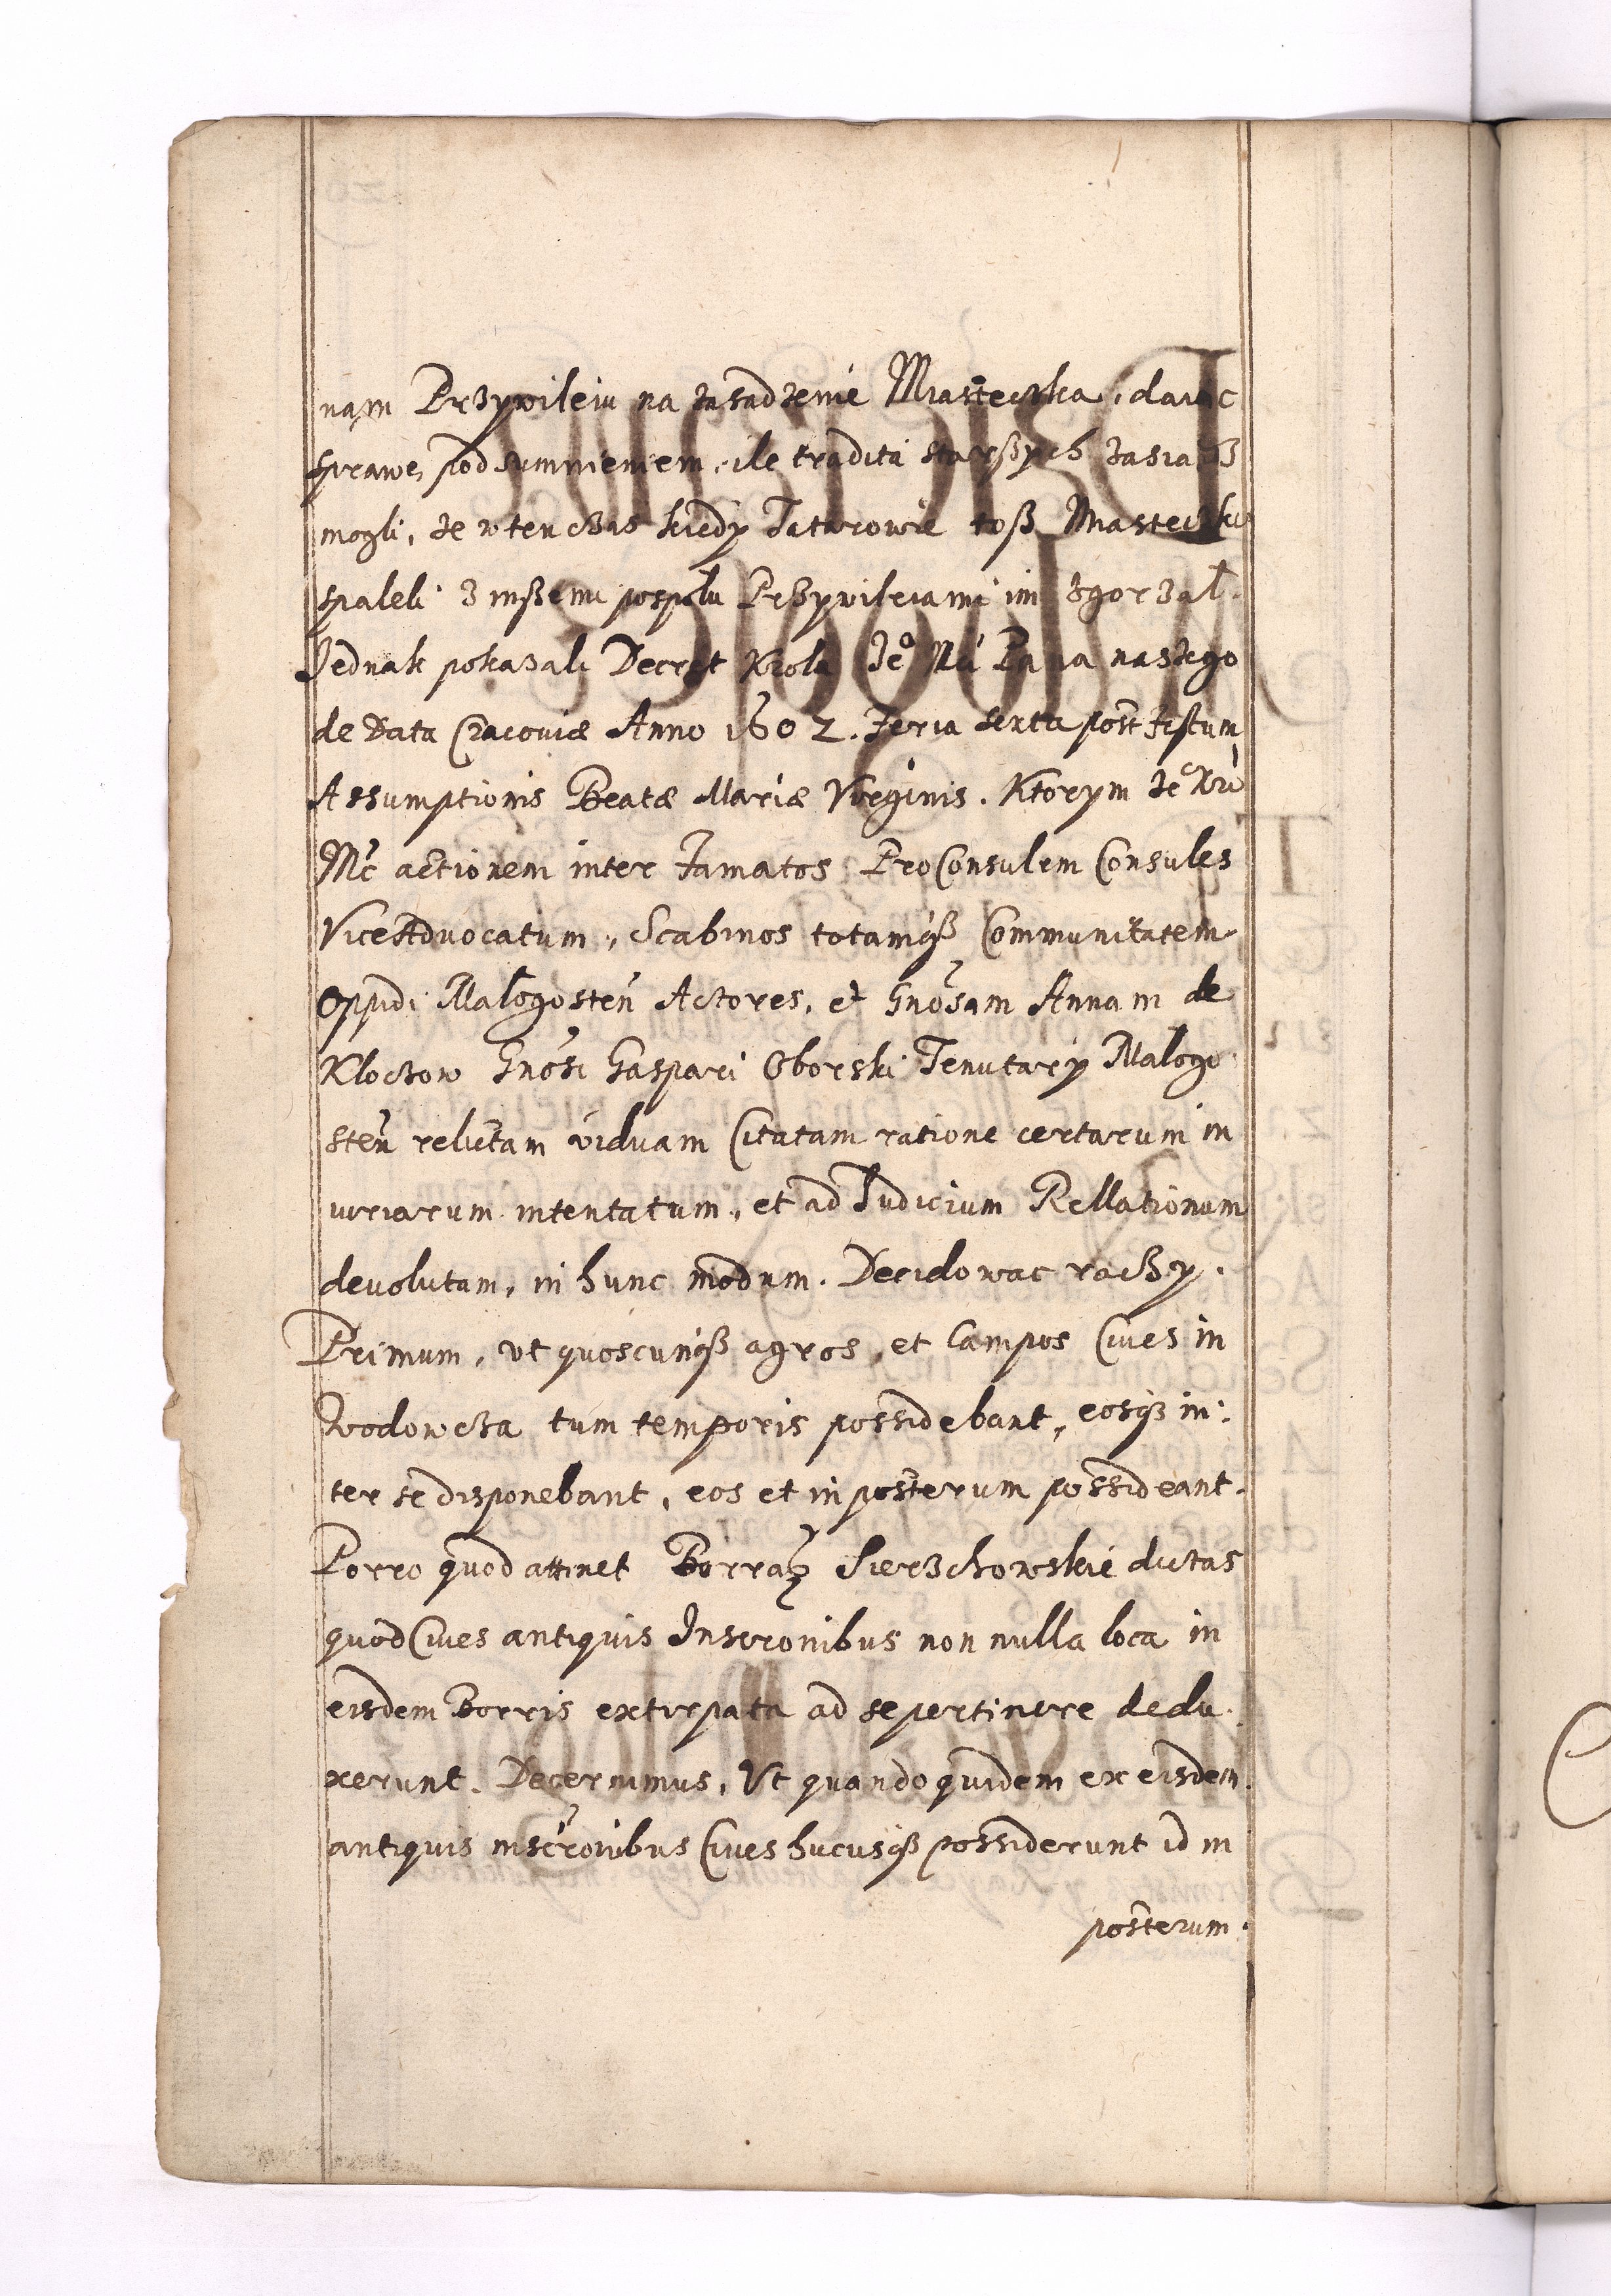 nam Przywileiu na zasadzenie Miasteczka, daiąc
sprawę, pod sumnieniem, ile tradita starßych zasiadz
mogli, że w ten czas kiedy Tatarowie toß Miasteczko
spaleli z inßemi pospołu Przywileiami im zgorzał.
Jednak pokazali Decret Krola Jeº Mći Pana naszego
de Data Cracoviæ Anno 1602. Feria sexta post Festum
Assumptionis Beatæ Mariæ Virginis. Ktorym Je Kró
Mć actionem inter Famatos ProConsulem Consules
ViceAdvocatum, Scabinos totamqß Communitatem
Oppidi Malogosteñ Actores, et Gnosam Annam de
Kloczow Gnosi Gaspari Oborski Tenutary Malogo
steñ relictam viduam Citatam ratione certarum in
iuriarum intentatum, et ad Iudicium Rellationum
devolutam, in hunc modum. Decidowac raczy.
Primum, ut quoscunqß agros, et Campos Cives in
wodowcza tum temporis possidebant, eosqß in:
ter se disponebant, eos et in posterum possideant.
Porro quod attinet Borras Sierzchowskie dictas
quod Cives antiquis Inscronibus non nulla loca in
eisdem Borris extirpata ad se pertinere dedu
xerunt. Decernimus, Ut quando quidem ex eisdem
antiquis inscronibus Cives hucusqß possiderunt id in
posterum